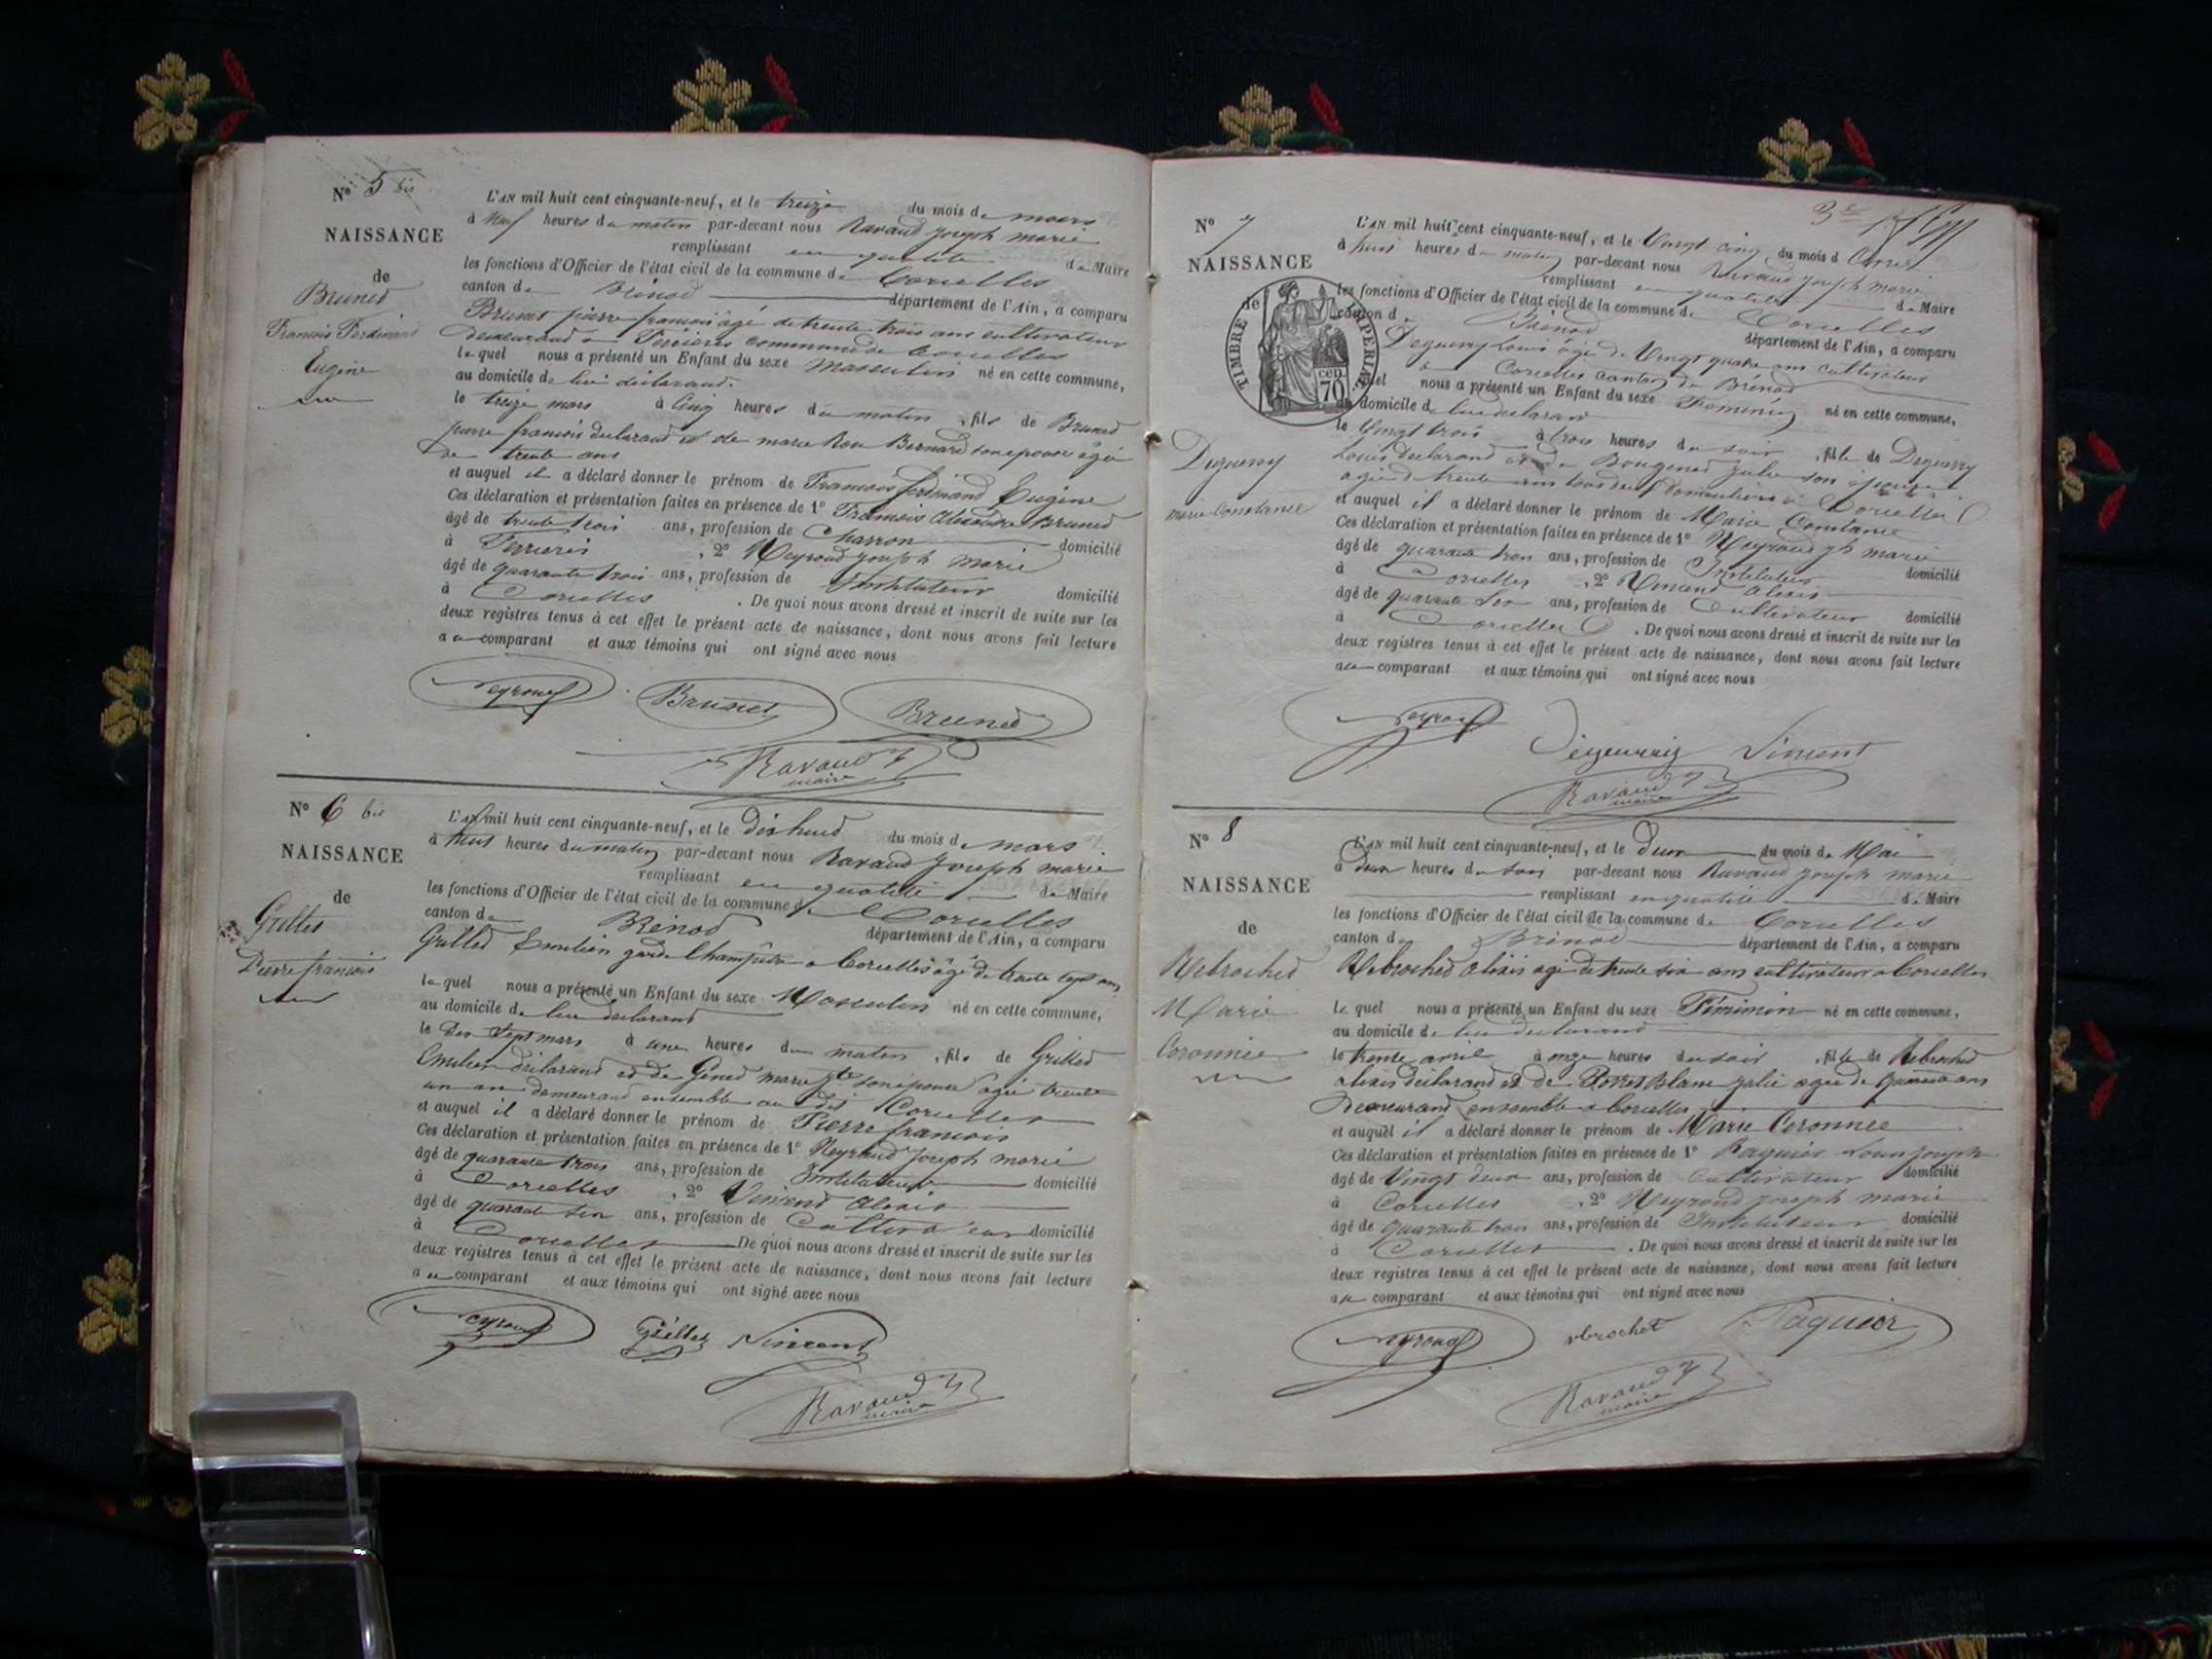 N° 5 bis
NAISSANCE
de
Brunet
François Ferdinand
Eugène
L'AN mil huit cent cinquante-neuf, et le treize du mois de mars
à neuf heures du matin par-devant nous Ravaud Joseph marie
remplissant en qualité de Maire
les fonctions d'Officier de l'état civil de la commune de Corcelles
canton de Brénod département de l'Ain, a comparu
Brunet pierre françois âgé de trente trois ans cultivateur
demeurand à Ferrières commune de Corcelles
lequel nous a présenté un Enfant du sexe Masculin né en cette commune,
au domicile de lui déclarant.
le treize mars à Cinq heures du matin, fils de Brunet
pierre françois declarand et de marie Bernard son epouse âgée
de trente ans
et auquel il a déclaré donner le prénom de François ferdinand Eugène
Ces déclaration et présentation faites en présence de 1° François Alexandre Brunet
âgé de trente trois ans, profession de Charron domicilié
à Ferrières, 2° Neyroud Joseph marie
âgé de quarante trois ans, profession de Instituteur domicilié
à Corcelles. De quoi nous avons dressé et inscrit de suite sur les
deux registres tenus à cet effet le présent acte de naissance, dont nous avons fait lecture
au comparant et aux témoins qui ont signé avec nous
Neyroud Brunet Brunet
Ravaud
maire
N° 6 bis
NAISSANCE
de
Grillet
Pierre françois
L'AN mil huit cent cinquante-neuf, et le dix huit du mois de mars
à neuf heures du matin par-devant nous Ravaud Joseph marie
remplissant en qualité de Maire
les fonctions d'Officier de l'état civil de la commune de Corcelles
canton de Brénod département de l'Ain, a comparu
Grilled Emilien garde Champêtre a Corcelles âgé de trente sept ans
lequel nous a présenté un Enfant du sexe Masculin né en cette commune,
au domicile de lui declarant
le Dix Sept mars à une heures du matin, fils de Grilled
Emilien déclarand et de Gened marie son épouse âgée trente
un ans demeurand ensemble au dit Corcelles
et auquel il a déclaré donner le prénom de Pierre françois
Ces déclaration et présentation faites en présence de 1° Neyroud Joseph marie
âgé de quarante trois ans, profession de Instituteur domicilié
à Corcelles, 2° Vincend Alexis
âgé de quarante six ans, profession de Cultivateur domicilié
à Corcelles De quoi nous avons dressé et inscrit de suite sur les
deux registres tenus à cet effet le présent acte de naissance, dont nous avons fait lecture
au comparant et aux témoins qui ont signé avec nous
Neyroud Grillet Vincent
Ravaud
maire
N° 7
NAISSANCE
de
TIMBRE IMPERIAL
70 cen
Deguerry
marie Constance
L'AN mil huit cent cinquante-neuf, et le Vingt cinq du mois d'Avril
à huit heures du matin par-devant nous Ravaud Joseph marie
remplissant en qualité de Maire
les fonctions d'Officier de l'état civil de la commune de Corcelles
canton de Brénod département de l'Ain, a comparu
Deguerry Louis âgé de Vingt quatre ans cultivateur
à Corcelles canton de Brénod
lequel nous a présenté un Enfant du sexe Feminin né en cette commune,
au domicile de lui declarant
le Vingt trois à trois heures du soir, fille de Deguerry
Louis declarand et de Bougened Julie son épouse
agée d trente ans tous deux Domiciliés à Corcelles
et auquel il a déclaré donner le prénom de Marie Constance
Ces déclaration et présentation faites en présence de 1° Neyroud jh marie
âgé de quarante trois ans, profession de Instituteur domicilié
à Corcelles, 2° Vincend alexis
âgé de quarante six ans, profession de Cultivateur domicilié
à Corcelles. De quoi nous avons dressé et inscrit de suite sur les
deux registres tenus à cet effet le présent acte de naissance, dont nous avons fait lecture
au comparant et aux témoins qui ont signé avec nous
Neyroud Vincent
Ravaud
maire
N° 8
NAISSANCE
de
Rebroched
Marie
Coronnée
L'AN mil huit cent cinquante-neuf, et le deux du mois de Mai
à deux heures du soir par-devant nous Ravaud Joseph marie
remplissant en qualité de Maire
les fonctions d'Officier de l'état civil de la commune de Corcelles
canton de Brénod département de l'Ain, a comparu
Rebroched Alexis agé de trente six ans cultivateur a Corcelles
lequel nous a présenté un Enfant du sexe Féminin né en cette commune,
au domicile de lui declarand
le trente avril à onze heures du soir, fille de Rebroched
alexis déclarand et de Blanc julie agée de ans
Demeurand ensemble a Corcelles
et auquel il a déclaré donner le prénom de Marie Coronnée
Ces déclaration et présentation faites en présence de 1° Paquier Louis Joseph
âgé de Vingt deux ans, profession de Cultivateur domicilié
à Corcelles, 2° Neyroud Joseph marie
âgé de quarante trois ans, profession de Instituteur domicilié
à Corcelles. De quoi nous avons dressé et inscrit de suite sur les
deux registres tenus à cet effet le présent acte de naissance, dont nous avons fait lecture
au comparant et aux témoins qui ont signé avec nous
Neyroud rbrochet Paquier
Ravaud
maire